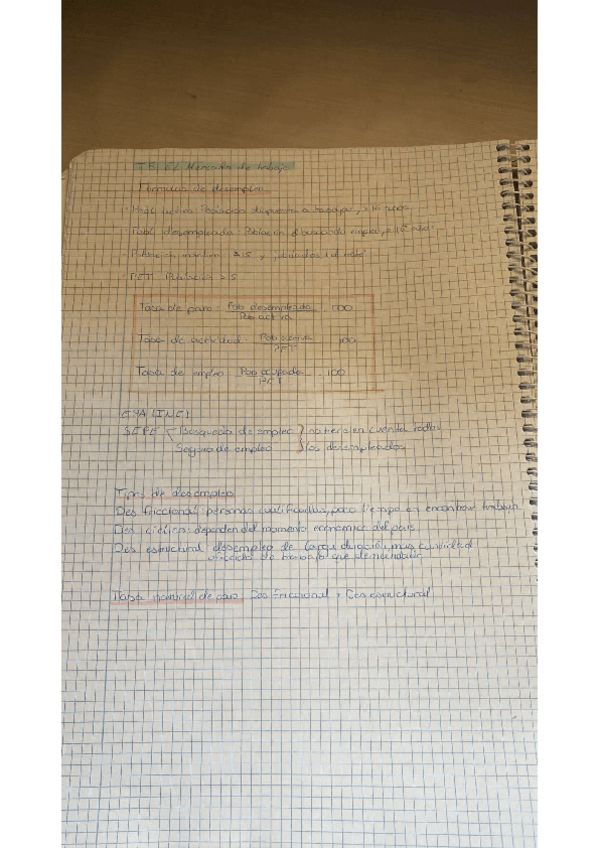 T.5. El Mercado de trabajo
Formulas de desempleo
Pobl. activa Población dispuesta a trabajar, >16 años
Pobl. desempleada Población buscando empleo, >16 años
≥ 15 y
PET: Población > 15
Tasa de paro = Pob desempleada / Pob activa . 100
Tasa de actividad = Pob activa / PET . 100
Tasa de empleo = Pob ocupada / PET . 100
EPA (INE)
SEPE Búsqueda de empleo } no tienen en cuenta todos
Seguro de empleo } los desempleados
Tipos de desempleo
Des friccional: personas cualificadas, poco tiempo en encontrar trabajo
Des cíclico: dependen del momento económico del país
Des estructural desempleo de larga duración, mas cantidad
de trabajo que demandada
Tasa natural de paro: Des friccional + Des estructural